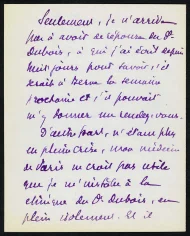 Seulement, je n'arrive
pas à avoir de réponse du Dr
Dubois, à qui j'ai écrit depuis
huit jours pour savoir s'il
serait à Berne la semaine
prochaine et s'il pouvait
m'y donner un rendez-vous.
D'autre part, n'étant plus
en pleine crise, mon médecin
de Paris ne croit pas utile
que je m'installe à la
clinique du Dr Dubois, en
plein isolement. Et il